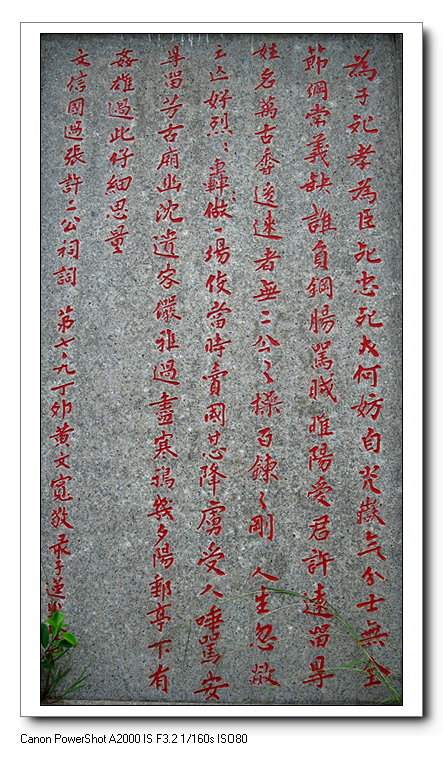 為子死孝為臣死忠死又何妨自光嶽氣分士無全
節綱常義缺誰負鋼腸罵賊睢陽愛君許遠留得
姓名萬古香後來者無二公之操百鍊之剛 人生忽欻
云亡好烈烈轟轟做一場使當時賣國甘降虜受人唾罵安
得留芳古廟幽沈遺容儼雅過盡寒鴉幾夕陽郵亭下有
姦雄過此仔細思量
文信國過張許二公祠詞 第七九丁卯黃文寬敬录于蓮
Canon PowerShot A2000 IS F3.2 1/160s ISO80